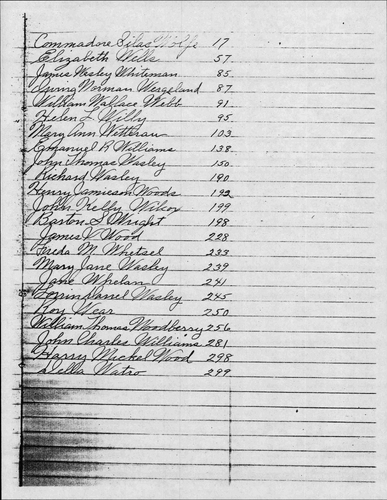 Commodore Silas Wolfe 17
Elizabeth Wells 57
James Wesley Whiteman 85
Irving Norman Weageland 87
William Wallace Webb 91
Helen L. Willy 95
Mary Ann Wetterau 103
Emanuel R Williams 138
John Thomas Wasley 150
Richard Wasley 190
Henry Jamieson Woods 192
John Kelly Wilcox 199
Barton S. Wright 198
James V. Wood 228
Freda M. Whetsel 233
Mary Jane Wasley 239
Jane Whelan 241
Daniel Wasley 245
Roy Wear 250
William Thomas Woodberry 256
John Charles Williams 281
Harry Mickel Wood 298
Della Watro 299